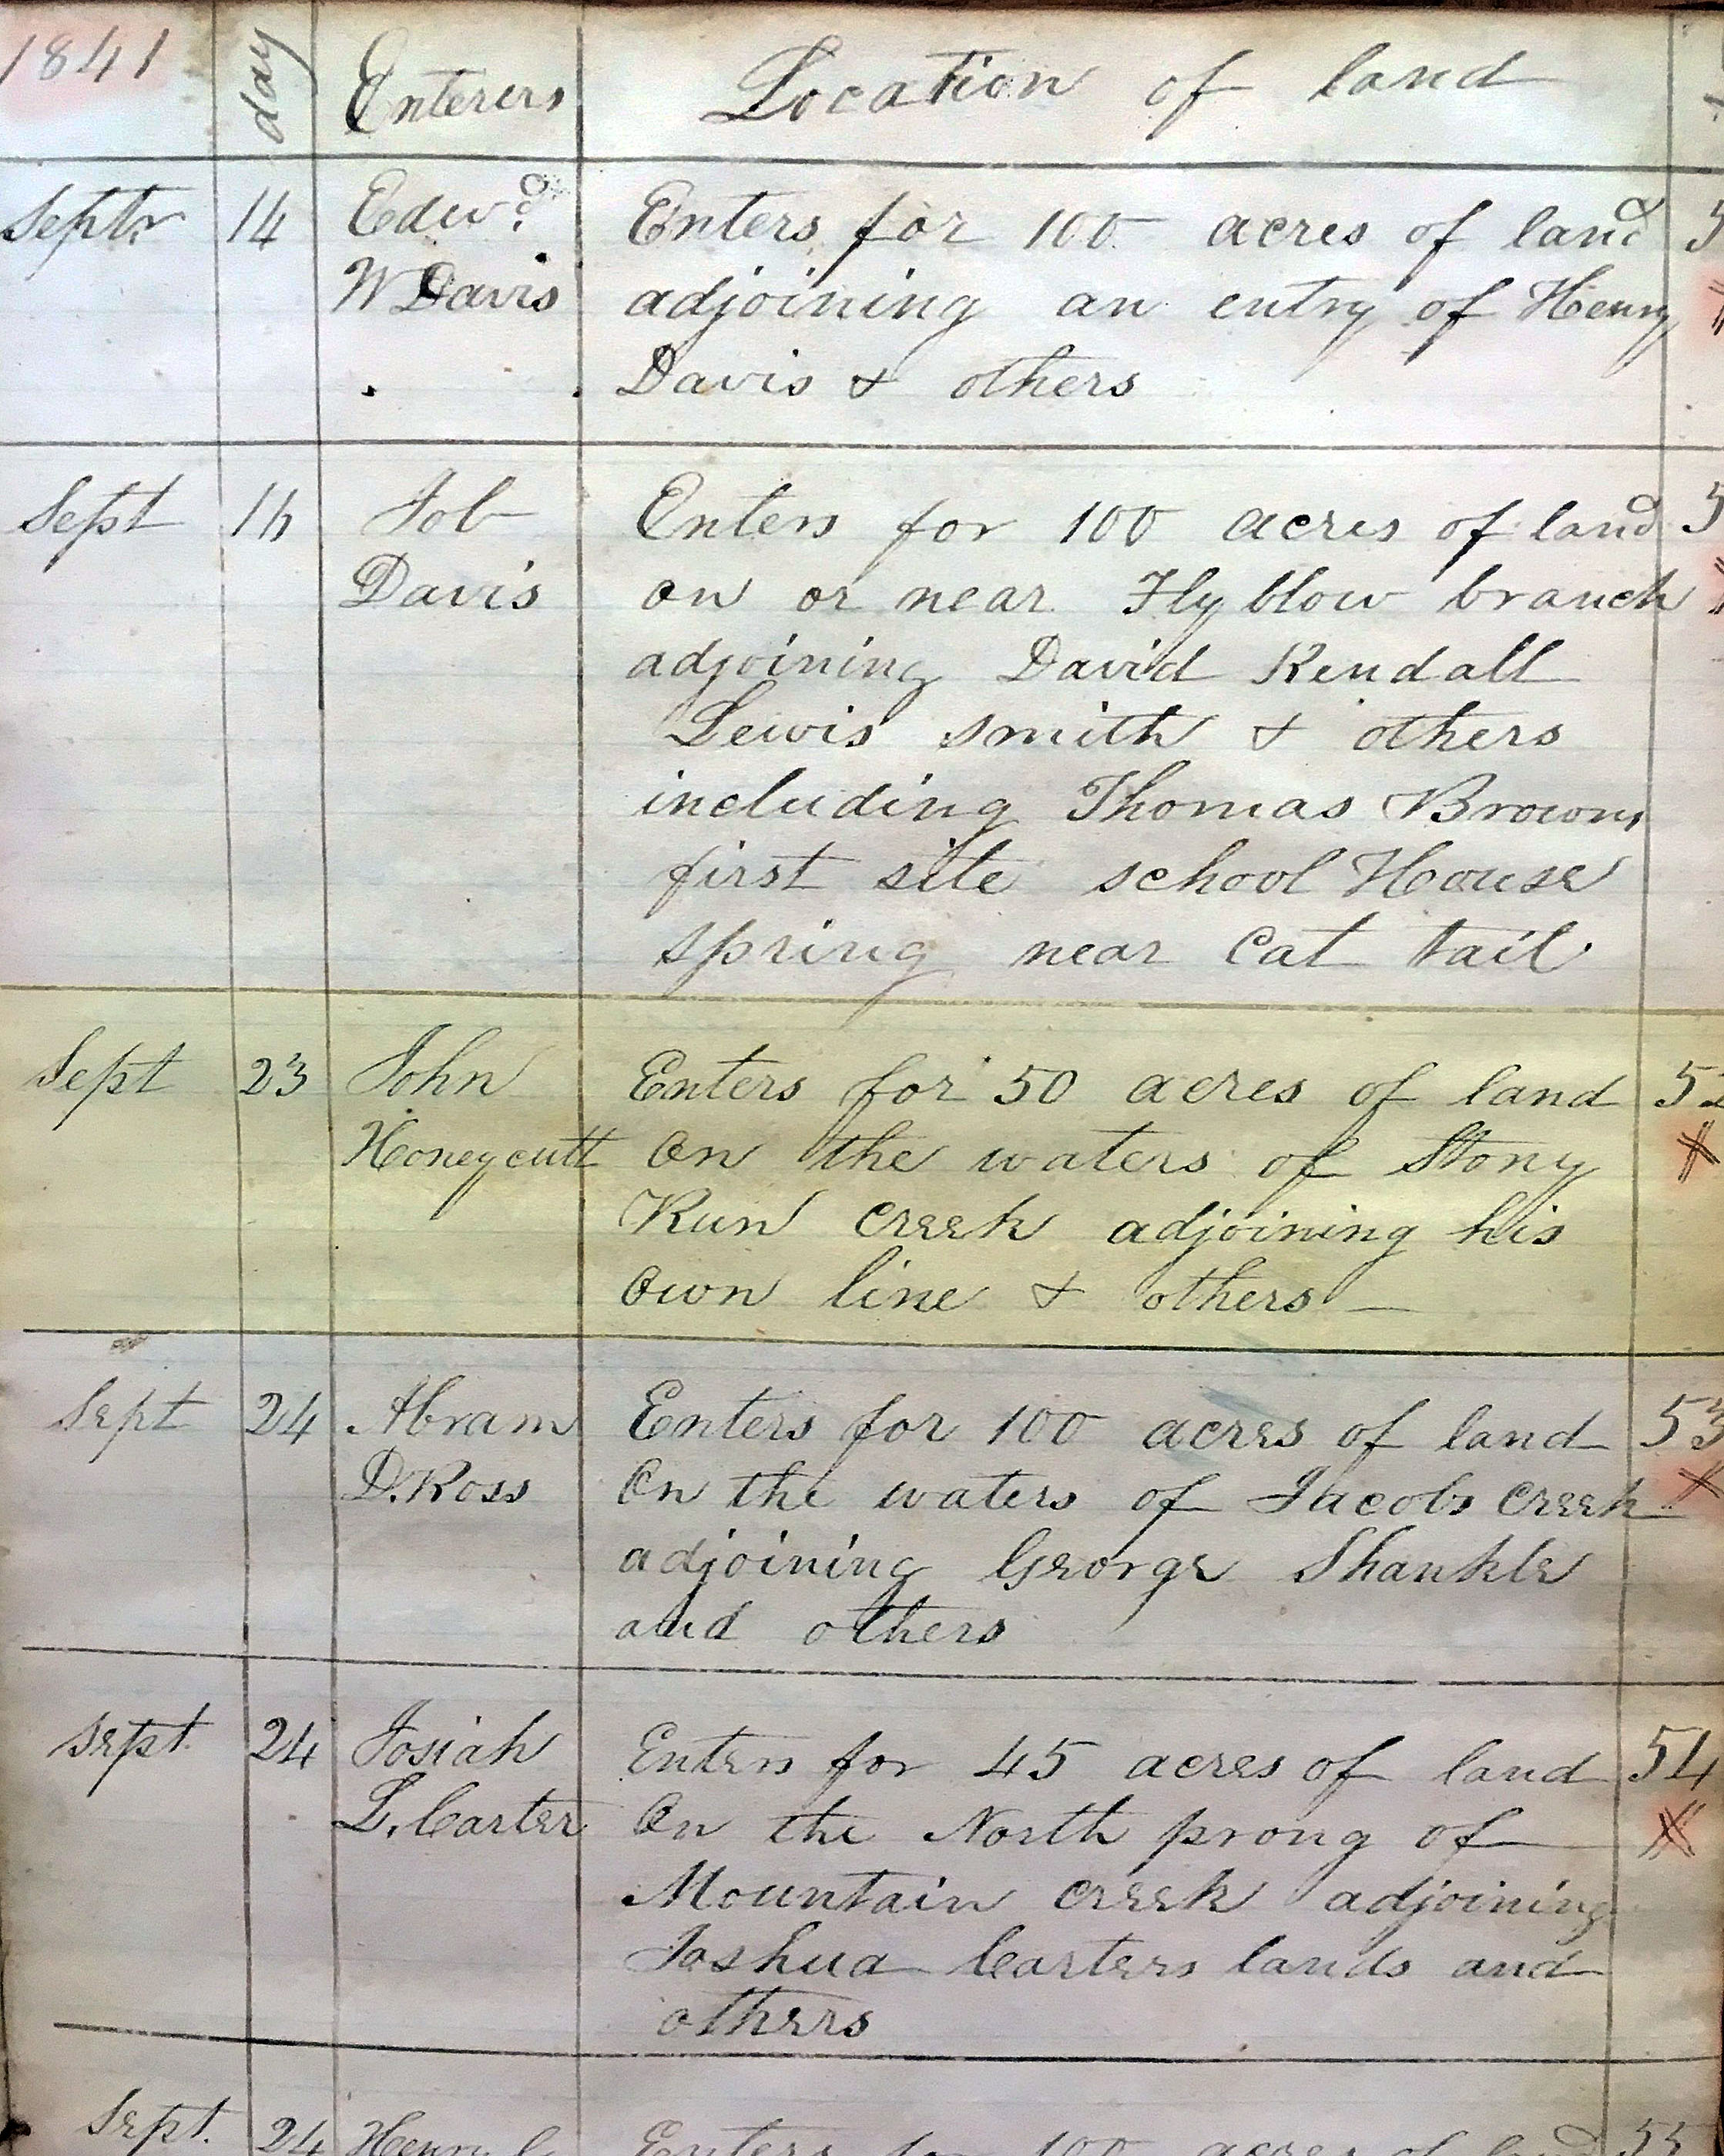 1841 day Enterers Location of land
Septr 14 Edwd. Enters for 100 acres of land
W Davis adjoining an entry of Henry
Davis & others
Sept 16 Job Enters for 100 acres of land
Davis on or near Fly blow branch
adjoining David Kendall
Lewis smith & others
including Thomas Browns
first site school House
spring near Cat tail
Sept 23 John Enters for 50 acres of land 52
Honeycutt on the waters of Stony
Run Creek adjoining his
own line & others —
Sept 24 Abram Enters for 100 acres of land 53
D. Ross On the waters of Jacobs Creek
adjoining George Shankle
and others
Sept. 24 Josiah Enters for 45 acres of land 54
L. Carter On the North prong of
Mountain Creek adjoining
Joshua Carters lands and
others
Sept. 24 Henry Enters for 100 acres of land 55